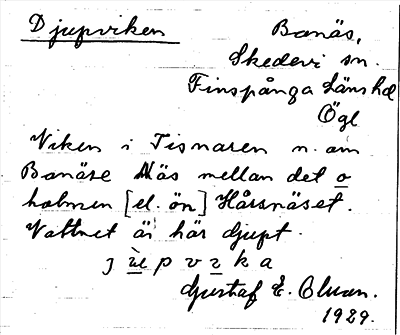 Djupviken
Banäs,
Skedevi sn.
Finspånga länshd
Ögl
Viken i Tisnaren n. om
Banäse Näs mellan det o
holmen [el. ön] Hårsnäset.
Vattnet är här djupt.
Gustaf E. Olsson.
1929.